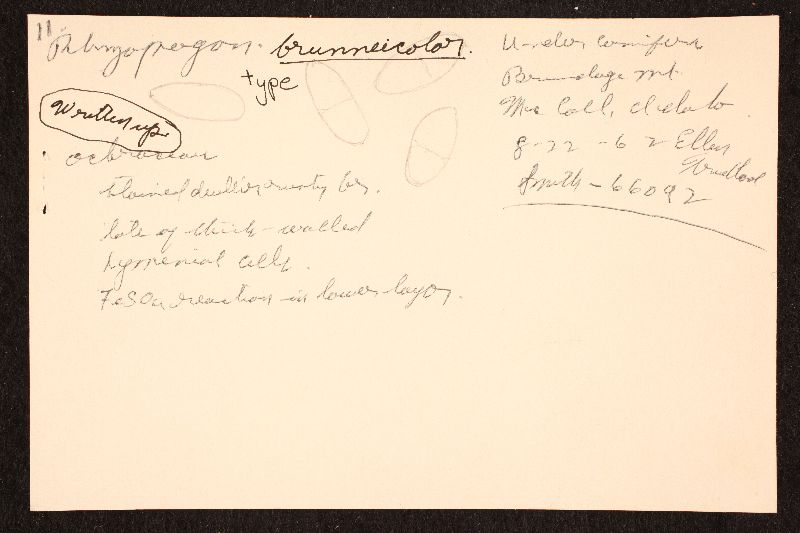 11
Rhizopogon brunneicolor.
type
Written up.
ochraceus
stained dull
lots of thick-walled
hymenial cells.
FeSO4 reaction in lower layer.
Under conifers
Brundage mt.
Mc Call, Idaho
8-22-62 Ellen
Smith - 66092